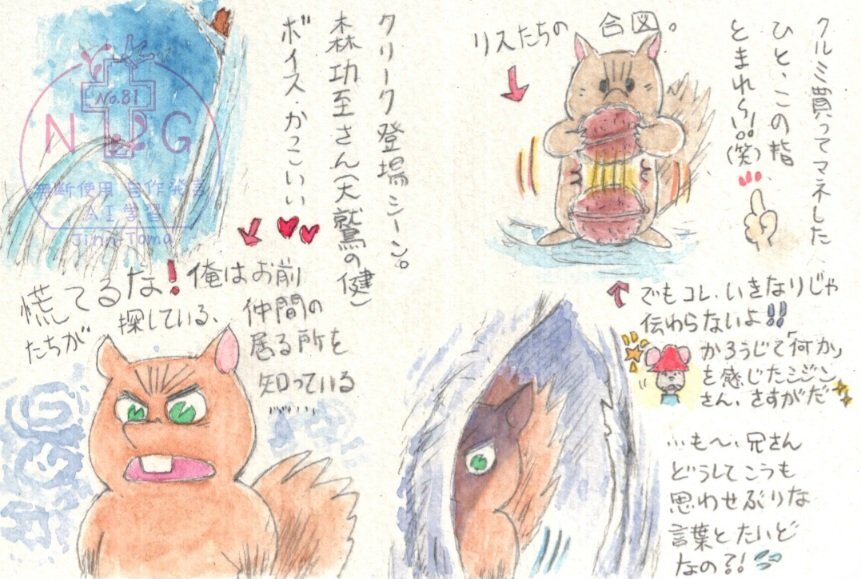 クルミ買ってマネした
ひと、この指
とまれら!!。(笑)
リスたちの 合図。
でもコレ、いきなりじゃ
伝わらないよ!!
かろうじて「何か」
を感じたミジン
さん、さすがだ
…も〜、兄さん
どうしてこうも
思わせぶりな
言葉とたいど
なの?!
クリーク登場シーン。
森功至さん(大鷲の健)
ボイス・かっこいい
慌てるな!俺はお前
たちが
探している、
仲間の
居る所を
知っている
No.81
NPG
無断使用 自作発言
AI学習
Jinn-Toma